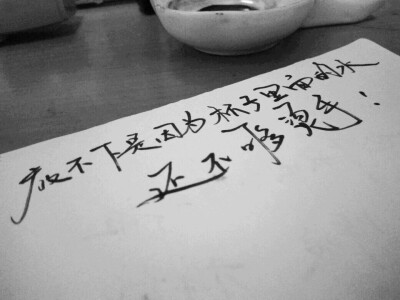 放不下是因为杯子里面的水
还不够烫手!